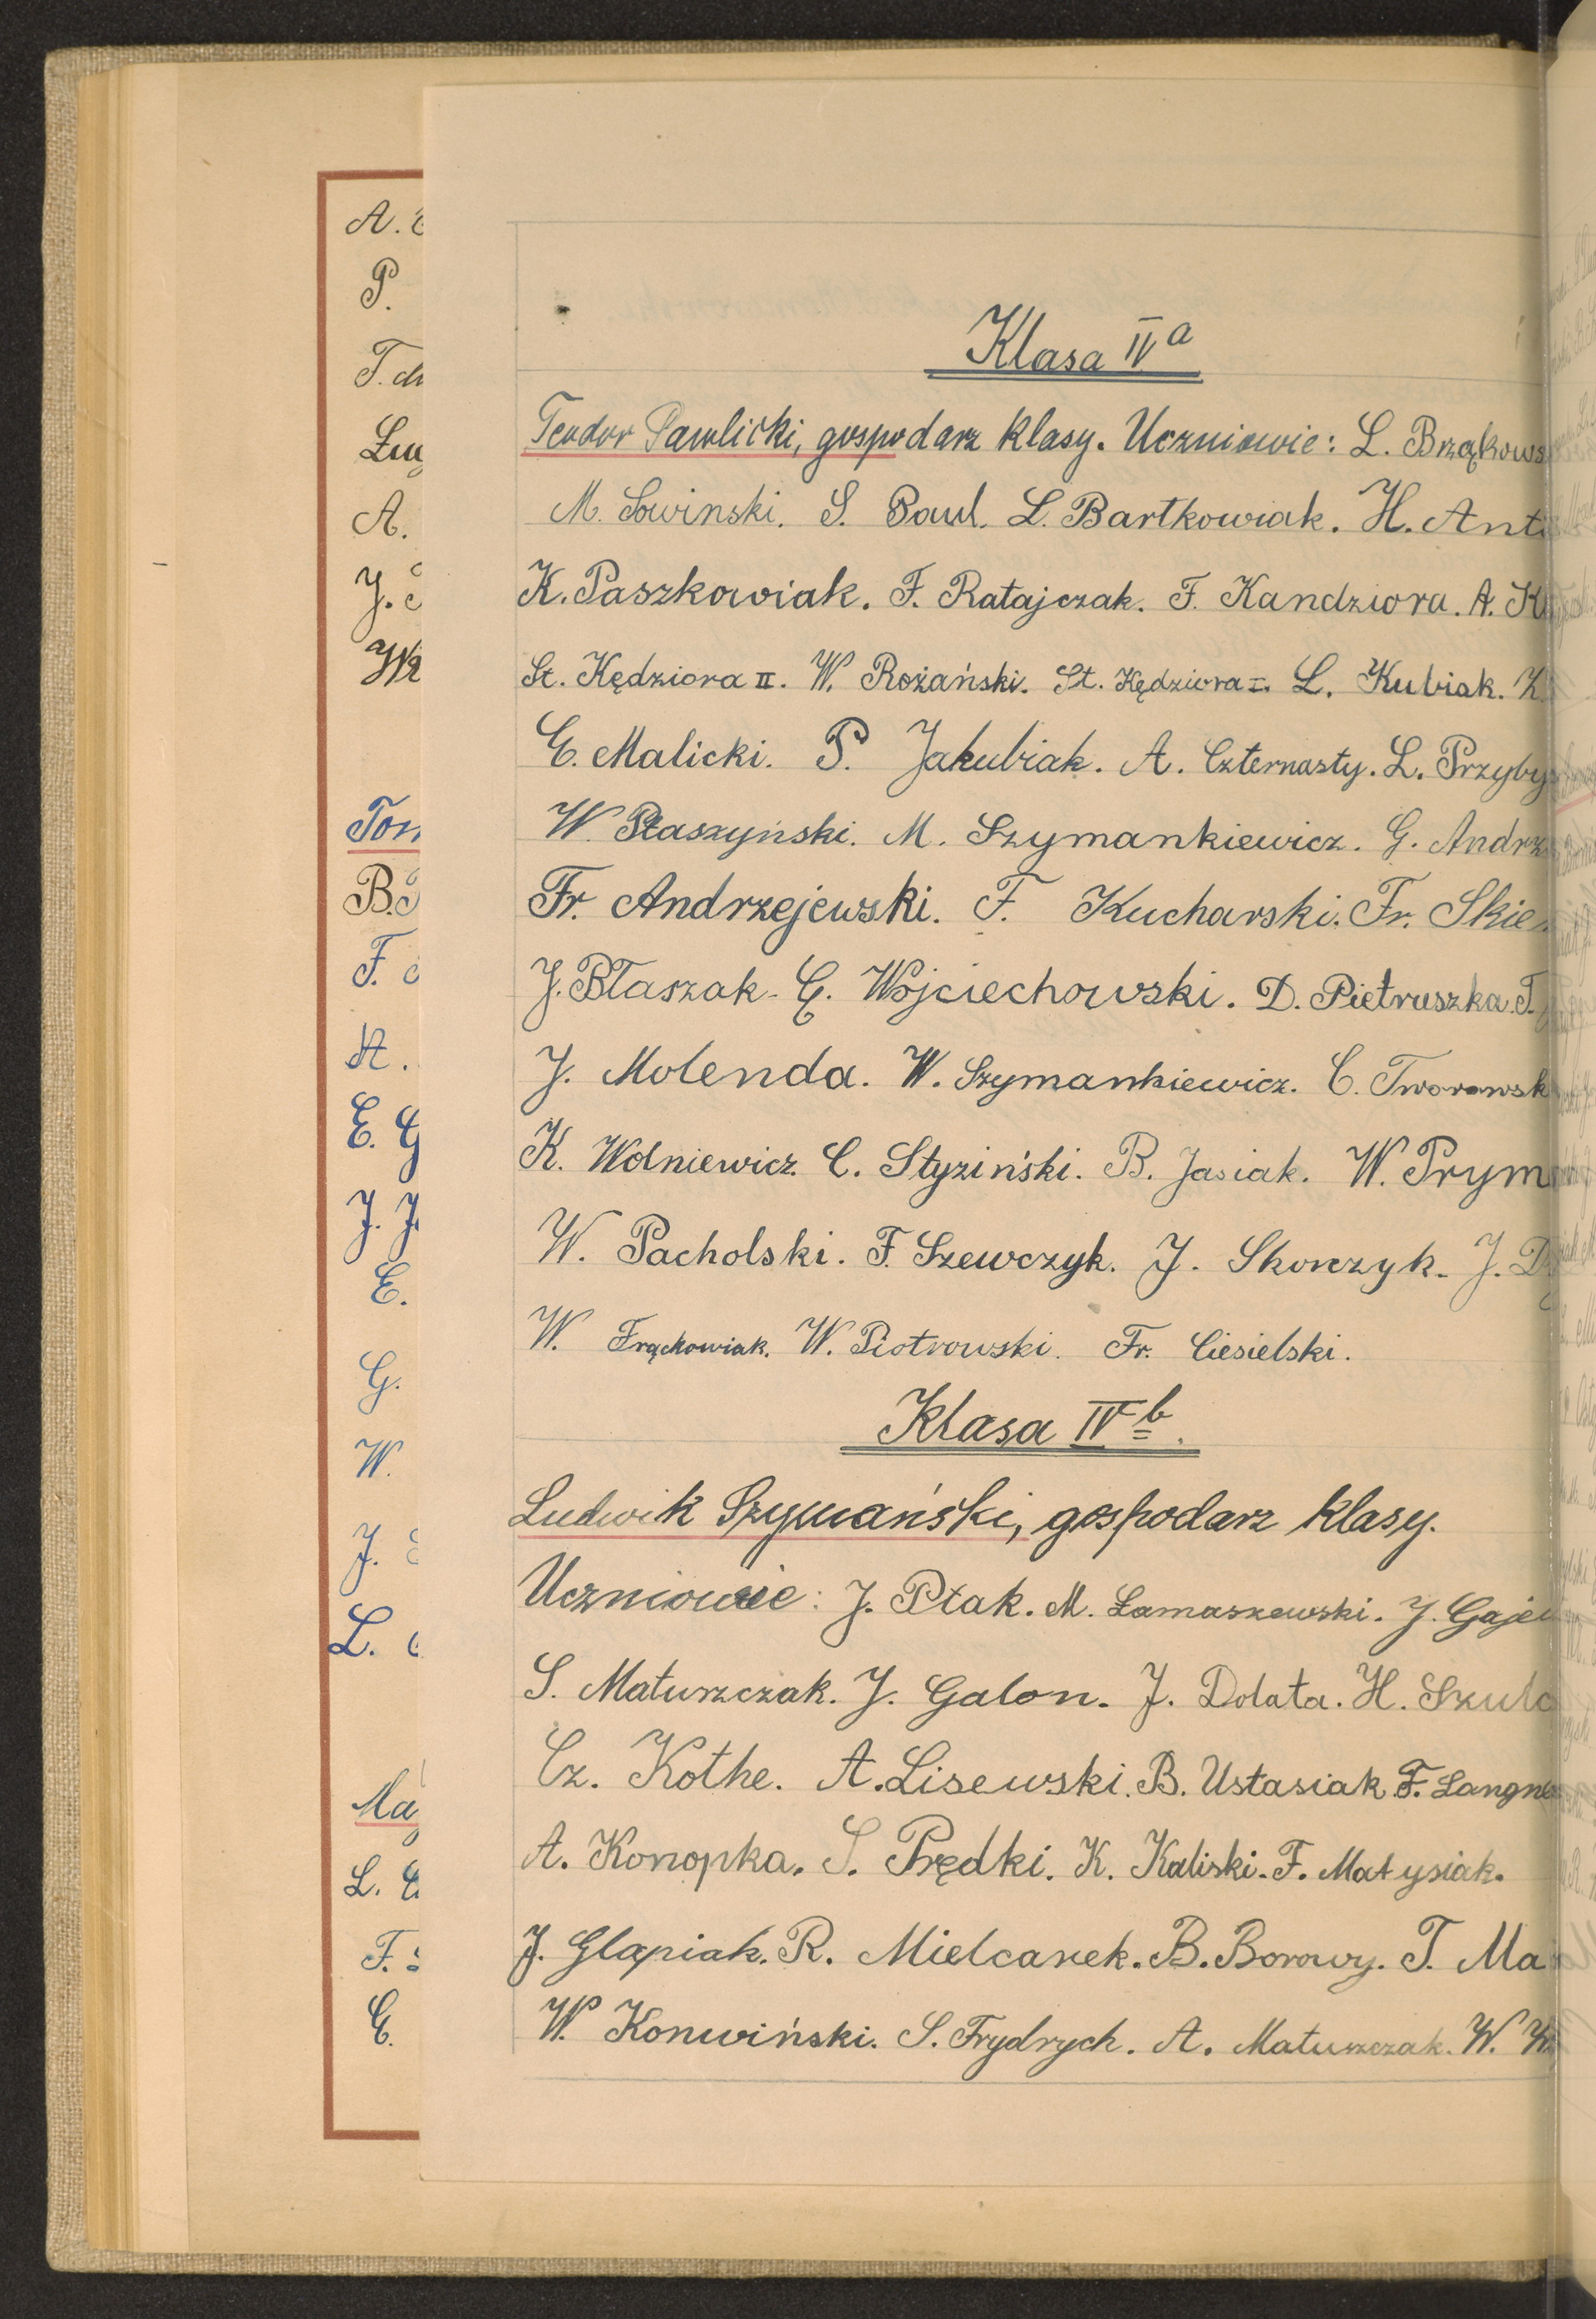 Klasa IVa
Teodor Pawlicki, gospodarz klasy. Uczniowie: L. Brząkows
M. Sowinski. S. Paul. L. Bartkowiak. H. Ant
K. Paszkowiak. F. Ratajczak. F. Kandziora. A. K
St. Kędziora II. W. Rożański. St. Kędziora I. L. Kubiak. K.
E. Malicki. P. Jakubiak. A. Czternasty. L. Przyby
W. Płaszyński. M. Szymankiewicz. G. Andrz
Fr. Andrzejewski. F. Kucharski. Fr. Skie
J. Błaszak. G. Wojciechowski. D. Pietruszka. T.
J. Molenda. W. Szymankiewicz. C. Tworowsk
K. Wolniewicz. C. Styziński. B. Jasiak. W. Prym
W. Pacholski. F. Szewczyk. J. Skorczyk. J. D
W. Frąckowiak. W. Piotrowski. Fr. Ciesielski.
Klasa IVb.
Ludwik Szymański, gospodarz klasy.
Uczniowie: J. Ptak. M. Łamaszewski. J. Gaje
S. Maturzczak. J. Galon. J. Dolata. H. Szulc
Cz. Kothe. A. Lisewski. B. Ustasiak. F. Langn
A. Konopka. S. Prędki. K. Kaliski. F. Matysiak.
J. Glapiak. R. Mielcarek. B. Borowy. T. Ma
W. Konwiński. S. Frydrych. A. Maturzczak. W. W
A.
P.
T. ch
A.
J.
Tom
B.
F.
St.
E. G
J. J.
E.
G.
W.
J.
L.
Ma
L.
F.